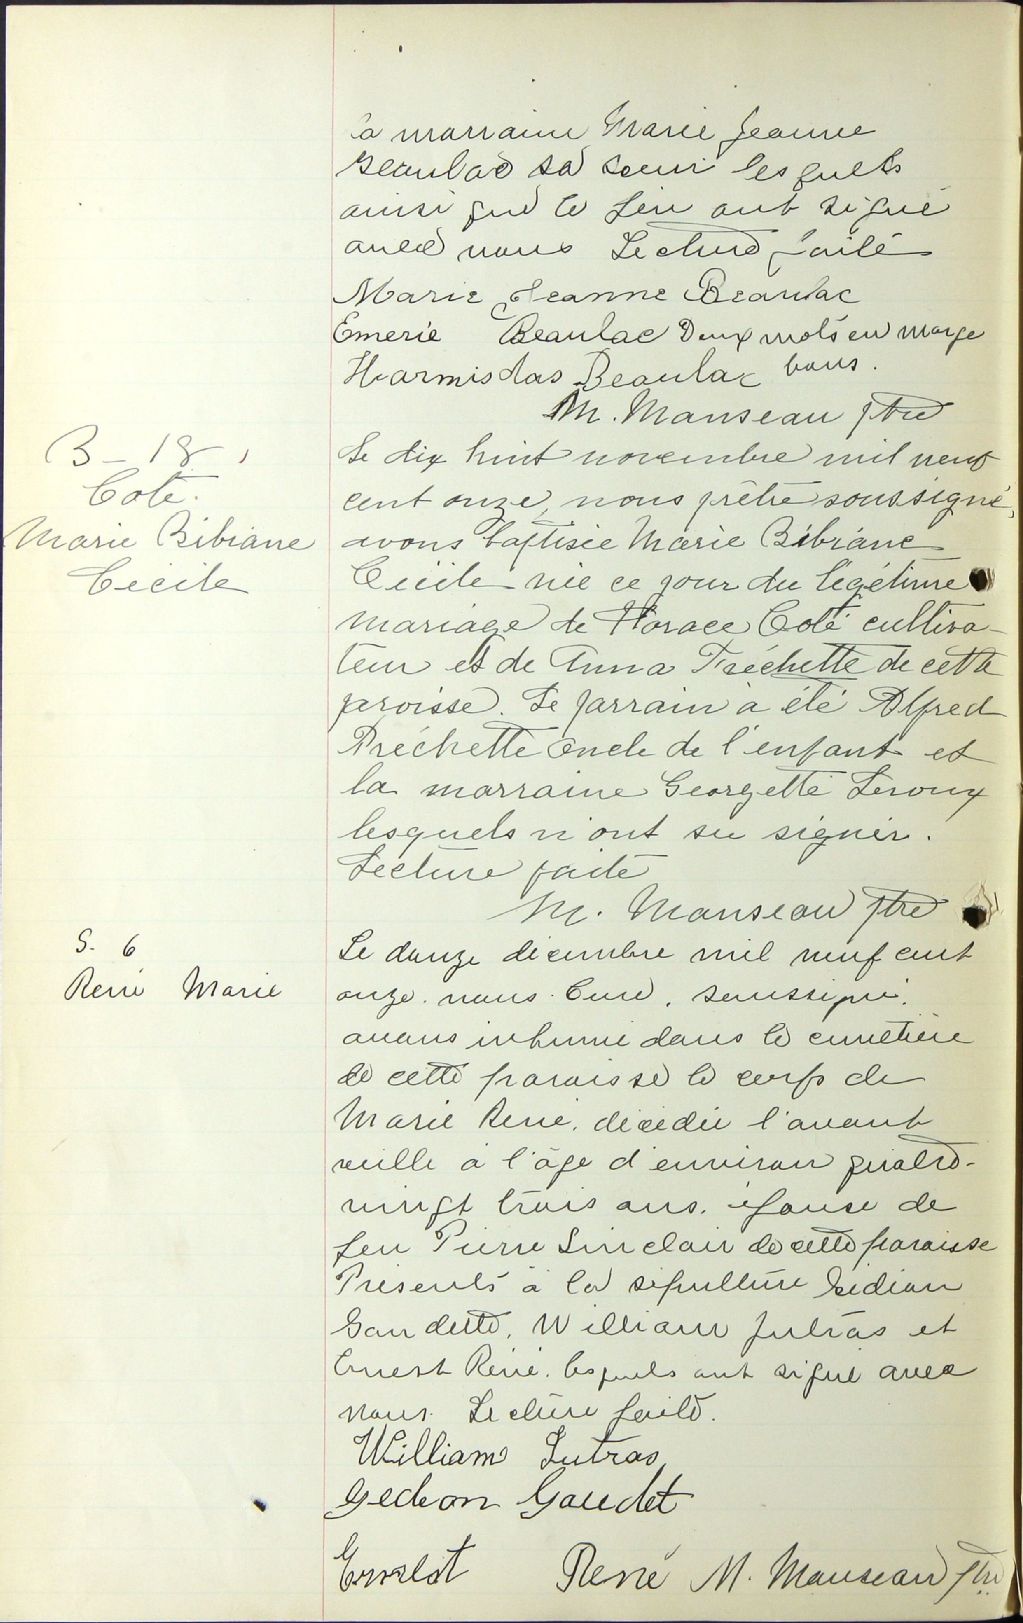 la marraine Marie Jeanne
Beaulac sa soeur lesquels
ainsi que le père ont signé
avec nous Lecture faite
Marie Jeanne Beaulac
Emerie Beaulac Deux mots en marge
Harmisdas Beaulac bons.
M. Manseau ptre
B - 18
Coté.
Marie Bibiane
Cécile
Le dix huit novembre mil neuf
cent onze, nous prêtre soussigné,
avons baptisée Marie Bibiane
Cécile née ce jour du légitime
mariage de Horace Coté cultiva-
teur et de Anna Fréchette de cette
paroisse. Le parrain a été Alfred
Fréchette oncle de l'enfant et
la marraine Georgette Leroux
lesquels n'ont su signer.
Lecture faite
M. Manseau ptre
S. 6
René Marie
Le douze décembre mil neuf cent
onze. nous. Curé. soussigné.
avons inhumé dans le cimetière
de cette paroisse le corps de
Marie René. décédée l'avant
veille à l'âge d'environ quatre-
vingt trois ans. épouse de
feu Pierre Sinclair de cette paroisse
Présents à la sépulture Gédéon
Gaudette, William Jutras et
Ernest René. lesquels ont signé avec
nous. Lecture faite.
William Jutras
Gedeon Gaudet
Ernest René M. Manseau ptre